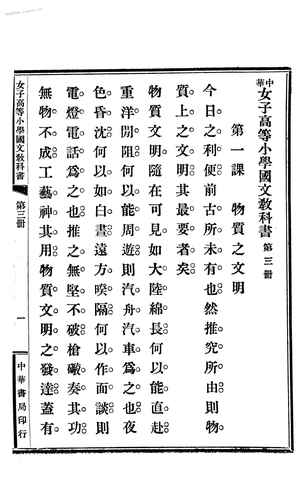 中華女子高等小學國文教科書 第三冊
第一課 物質之文明
今日之利便。前古所未有也。然推究所由。則物
質上之文明。其最要者矣。
物質文明。隨在可見。如大陸綿長。何以能直赴。
重洋間阻。何以能周遊。則汽舟汽車爲之也。夜
色昏沈。何以如白晝。遠方暌隔。何以作面談。則
電燈電話爲之也。推之無堅不破。槍礮奏其功。
無物不成。工藝神其用。物質文明之發達。蓋有
女子高等小學國文教科書 第三冊 一 中華書局印行